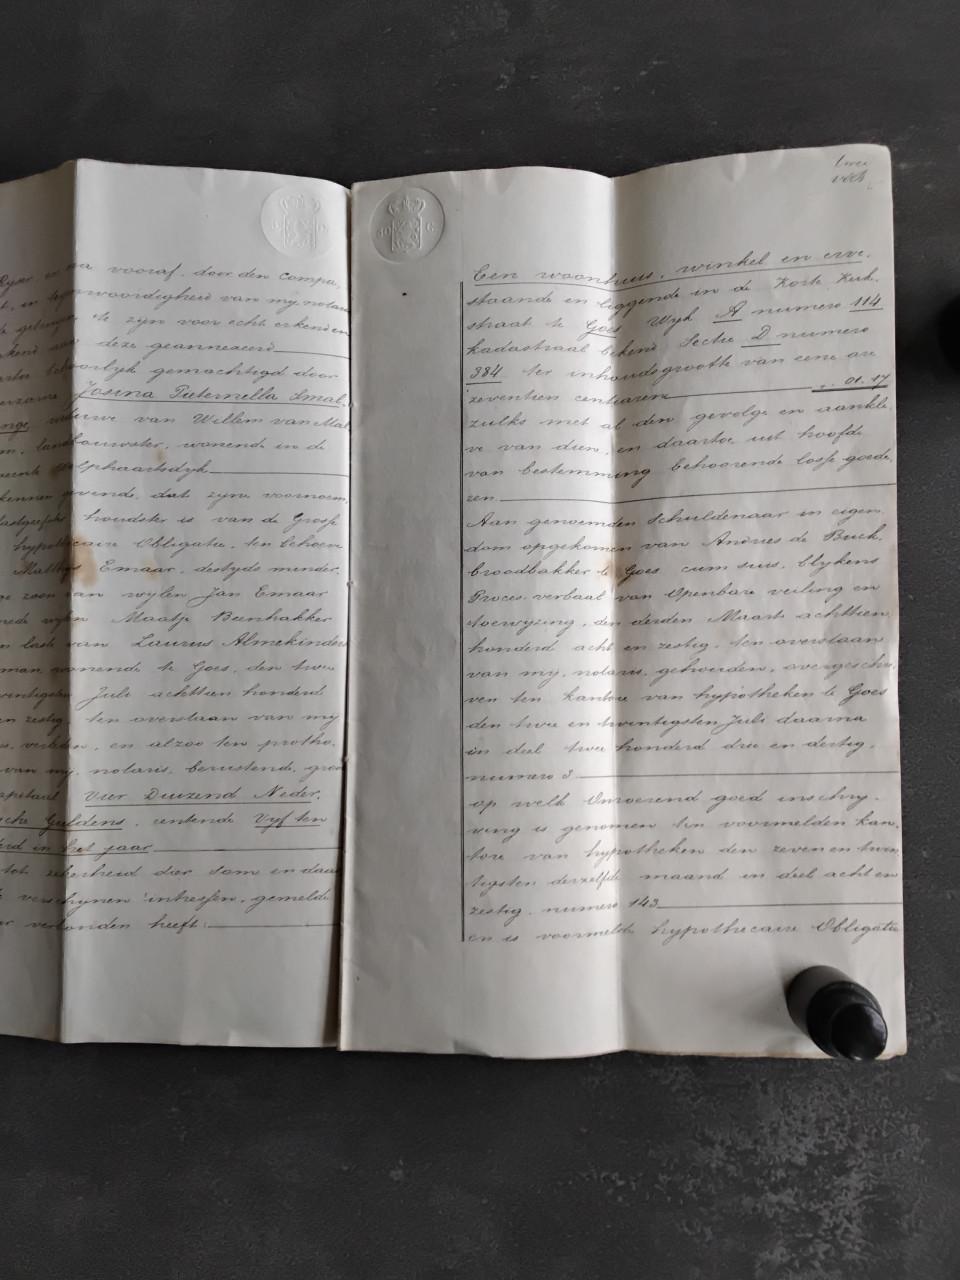 vooraf, door den Compa,
woordigheid van my, notaris
te zijn voor echt erkend en
deze geannexeerd
behoorlyk gemachtigd door
Josina Pieternella Smal,
weduwe van Willem van
landbouwster, wonende in de
kennen gevende, dat zyne voornoem,
houdster is van de Grosse
hypothecaire Obligatie, ten behoeve
Matthys Emaar, destyds minder,
zoon van wylen Jan Emaar
wylen Maatje Beenhakker
en laste van Laurus Almekinders
man wonende te Goes, den twee
Juli achttien honderd
en zestig, ten overstaan van my
verleden, en alzoo ten protho,
van my, notaris, berustende, groot
Vier Duizend Neder,
sche Guldens, rentende Vyf ten
in het jaar
tot zekerheid dier som en daar
verschynen intressen, gemelde
verbonden heeft:
twee
Een woonhuis, winkel en erve,
staande en liggende in de Korte Kerk,
straat te Goes Wyk A numero 114
kadastraal bekend Sectie D numero
384 ter inhoudsgrootte van eene are
zeventien centiaren 01.17
zulks met al den gevolge en aankle,
ve van dien, en daartoe uit hoofde
van bestemming behoorende losse goede,
ren.
Aan genoemden Schuldenaar in eigen,
dom opgekomen van Andries de Buck,
broodbakker te Goes cum suis, blykens
Proces-verbaal van Openbare veiling en
toewyzing, den derden Maart achttien
honderd acht en zestig, ten overstaan
van my, notaris, gehouden, overgeschre,
ven ten kantore van hypotheken te Goes
den twee en twintigsten Juli daarna
in deel twee honderd drie en dertig,
numero 3
op welk Onroerend goed inschry,
ving is genomen ten voormelden kan,
tore van hypotheken den zeven en twin
tigsten derzelfde maand in deel acht en
zestig, numero 143
en is voormelde hypothecaire Obligatie